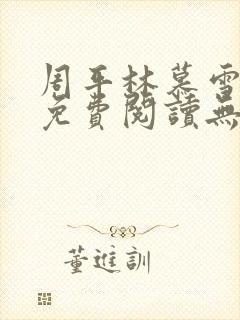 周平林慕雪
免費閱讀無
董進訓